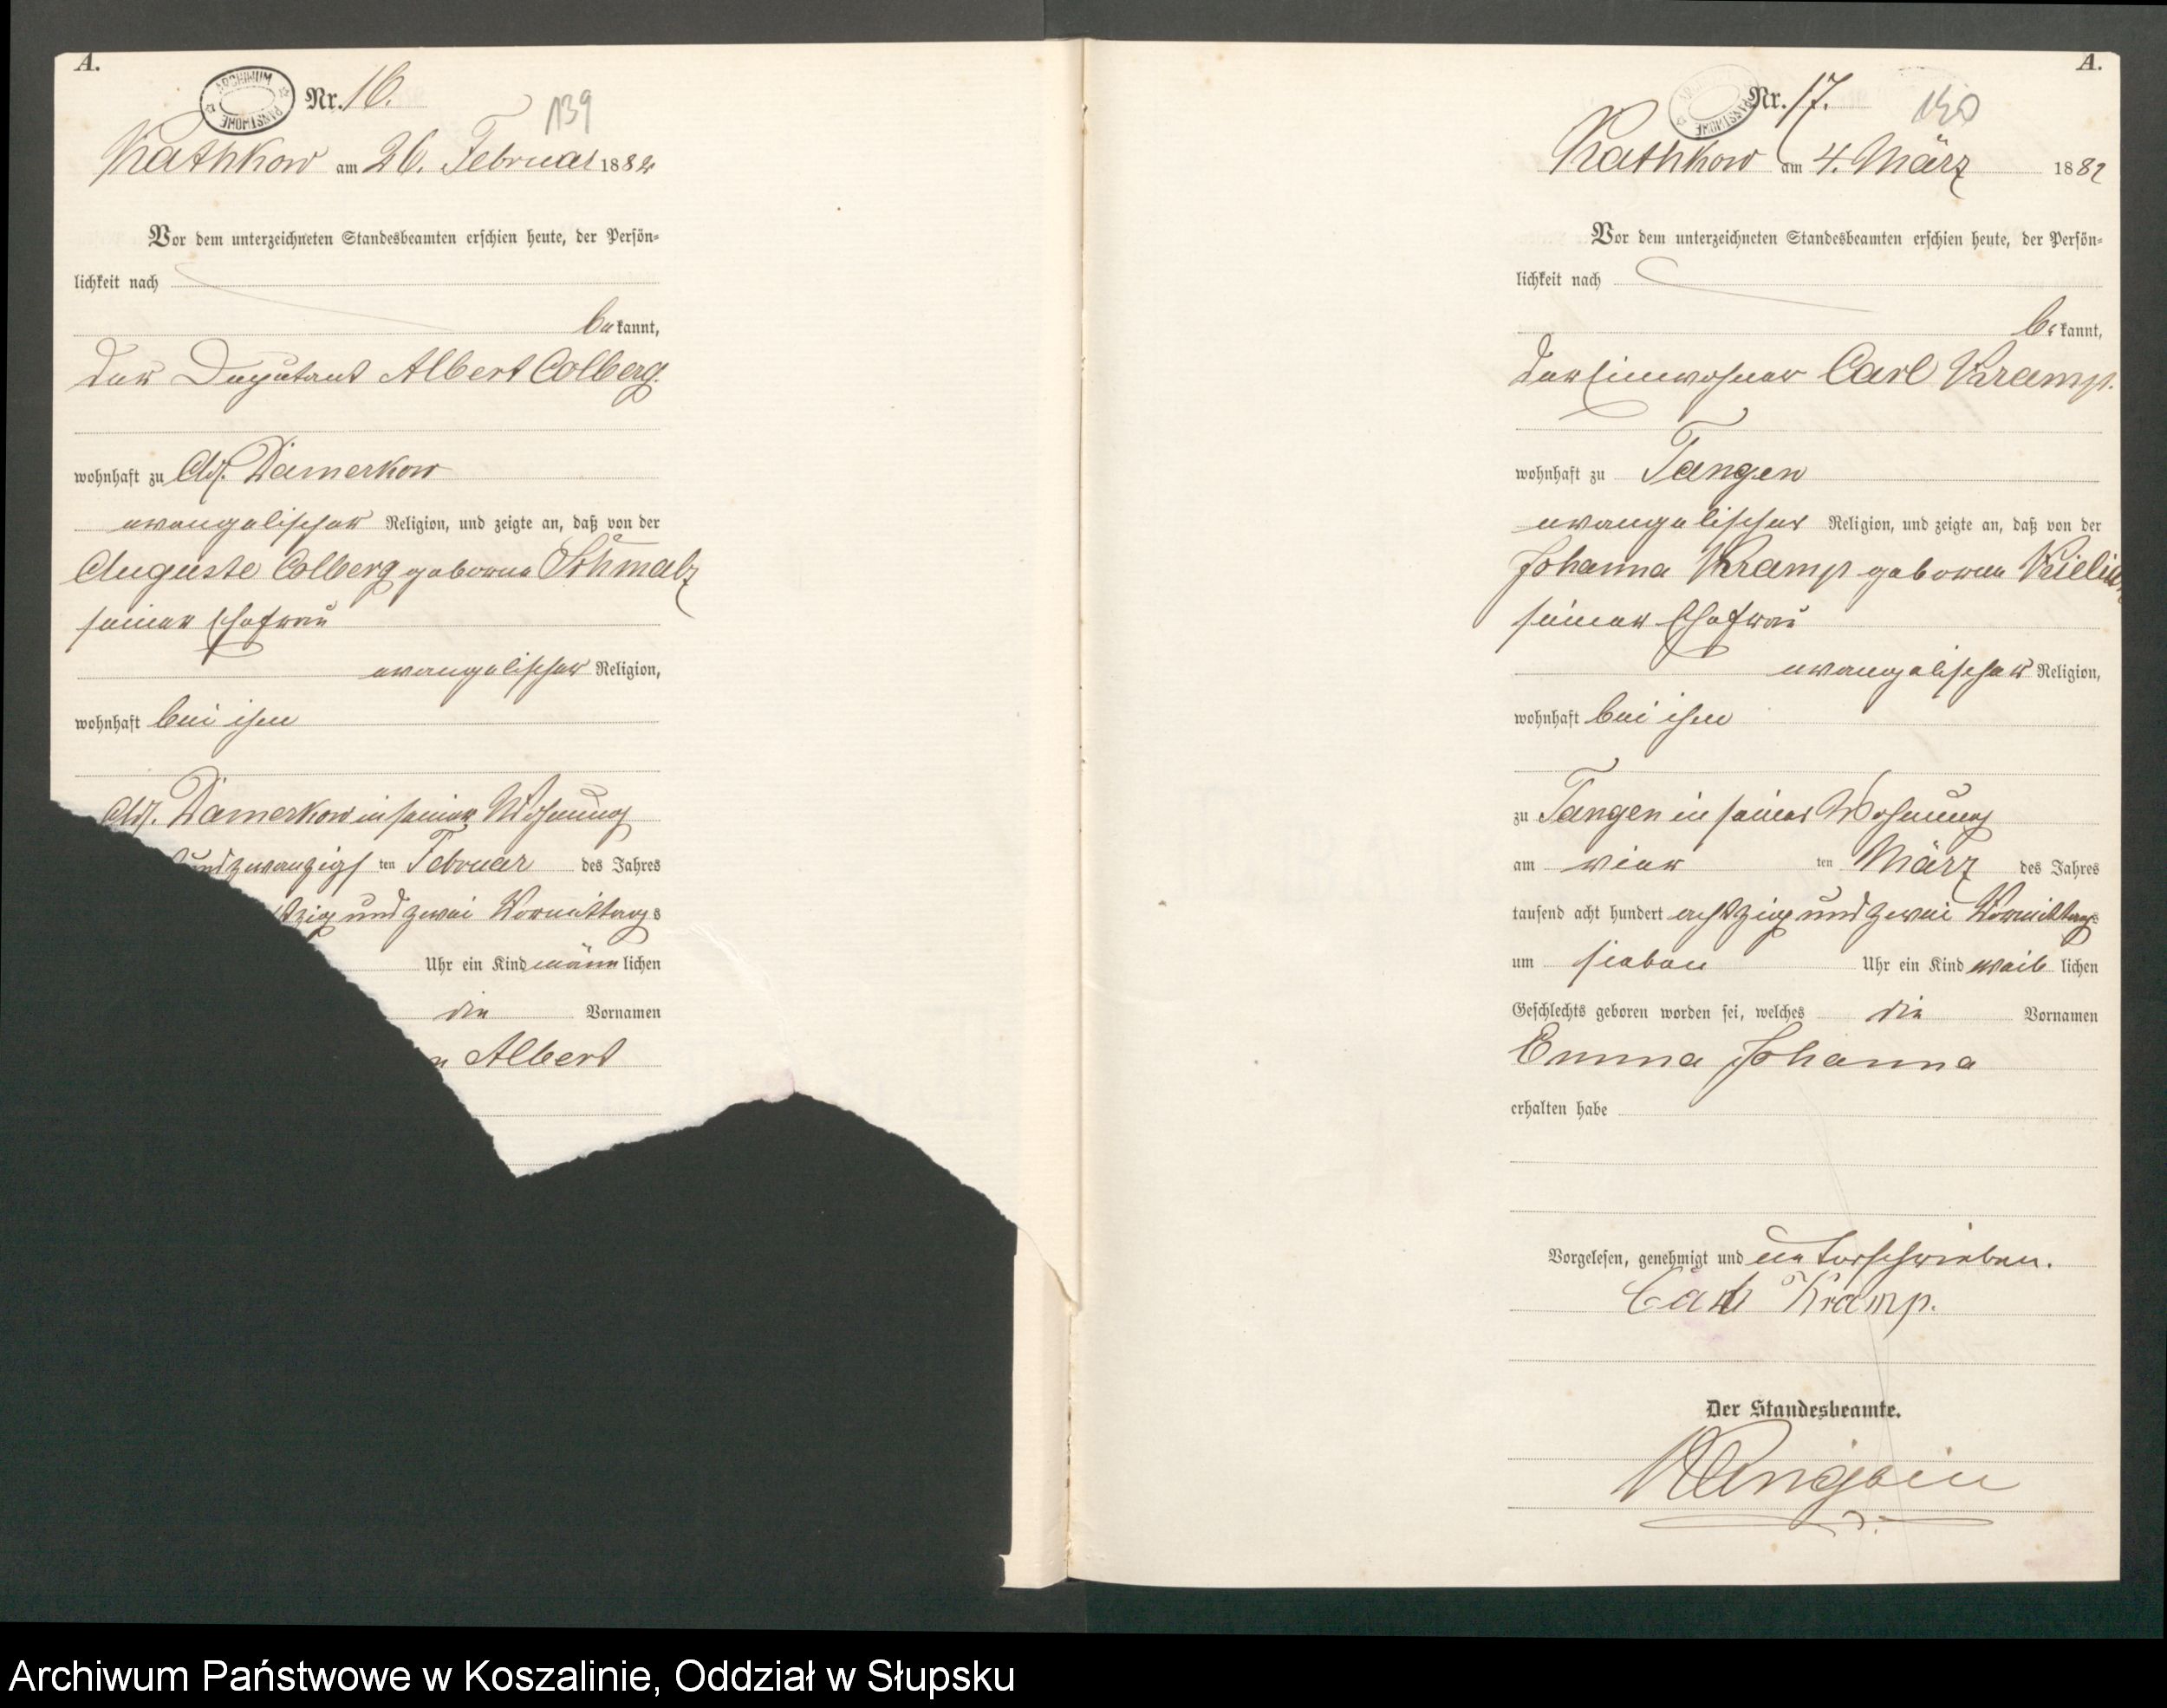 A.
ARCHIWUM PAŃSTWOWE
Nr. 16.
139
Rathkow am 26. Februar 1882
Vor dem unterzeichneten Standesbeamten erschien heute, der Persön-
lichkeit nach
bekannt,
der Deputant Albert Colberg.
wohnhaft zu Adl. Damerkow
evangelischer Religion, und zeigte an, daß von der
Auguste Colberg geborne Schmalz
seiner Ehefrau
evangelischer Religion,
wohnhaft bei ihm
Adl. Damerkow in seiner Wohnung
undzwanzigsten Februar des Jahres
tzig und zwei Vormittags
Uhr ein Kind männlichen
die Vornamen
n Albert
A.
Nr. 17.
140
Rathkow am 4. März 1882
Vor dem unterzeichneten Standesbeamten erschien heute, der Persön-
lichkeit nach
bekannt,
der Einwohner Carl Kramp.
wohnhaft zu Tangen
evangelischer Religion, und zeigte an, daß von der
Johanna Kramp geborne
seiner Ehefrau
evangelischer Religion,
wohnhaft bei ihm
zu Tangen in seiner Wohnung
am vier ten März des Jahres
tausend acht hundert achtzig und zwei Vormittags
um sieben Uhr ein Kind weiblichen
Geschlechts geboren worden sei, welches die Vornamen
Emma Johanna
erhalten habe
Vorgelesen, genehmigt und unterschrieben.
Carl Kramp.
Der Standesbeamte.
Archiwum Państwowe w Koszalinie, Oddział w Słupsku